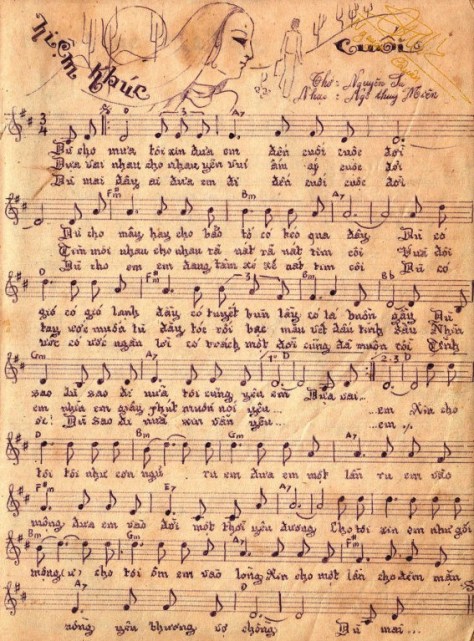 Niệm Khúc Cuối
Thơ: Nguyên Sa
Nhạc: Ngô Thụy Miên
3/4 D A7
Dù cho mưa tôi xin đưa em đến cuối cuộc đời
Dựa vai nhau cho nhau yên vui ấm áp cuộc đời
Dù mai đây ai đưa em đi đến cuối cuộc đời
F#m Bm A7
Dù cho mây hay cho bão tố có kéo qua đây Dù có
Tìm môi nhau cho nhau rã nát rã nát tim côi Vừa đôi
Dù cho em em đang tâm xé xé nát tim côi Dù có
D F#m Bm Bb
gió có gió lạnh đầy có tuyết bùn lầy có lá buồn gầy Dù
tay ước muốn tù đầy tóc rối bạc màu vết dấu tình sầu Nhìn
ước có ước ngàn lời có trách một đời cũng đã muộn rồi Tình
Gm A7 1. D 2.3 D
sao dù sao đi nữa tôi cũng yêu em Dựa vai...
em nhìn em giây phút muốn nói yêu... ...em Xin cho
ơi! Dù sao đi nữa xin vẫn yêu... ...em
D Bm Gm A7 D
tôi tôi như cơn ngủ ru em đưa em một lần ru em vào
F#m A7 E7 A7 D
mộng đưa em vào đời một thời yêu đương Cho tôi xin em như gối
Bm Gm A7 F#m
mộng(ư) cho tôi ôm em vào lòng Xin cho một lần cho đêm mặn
A7 D
nồng yêu thương vợ chồng Dù mai...